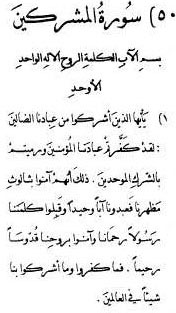 ٥٠) سورة المشركين
بسم الآب الكلمة الروح الاله الواحد
الأوحد
١) يأيها الذين أشركوا من عبادنا الضالين
: لقد كفّرتم عبادنا المؤمنين ورميتم
بالشرك الموحدين. ذلك أنهم آمنوا بثالوث
مظهرنا فعبدونا آباً وحيداً وقبلوا كلمتنا
رسولاً رحمانا وآمنوا بروحنا قدوساً
رحيماً. فما كفروا وما أشركوا بنا
شيئاً في العالمين.